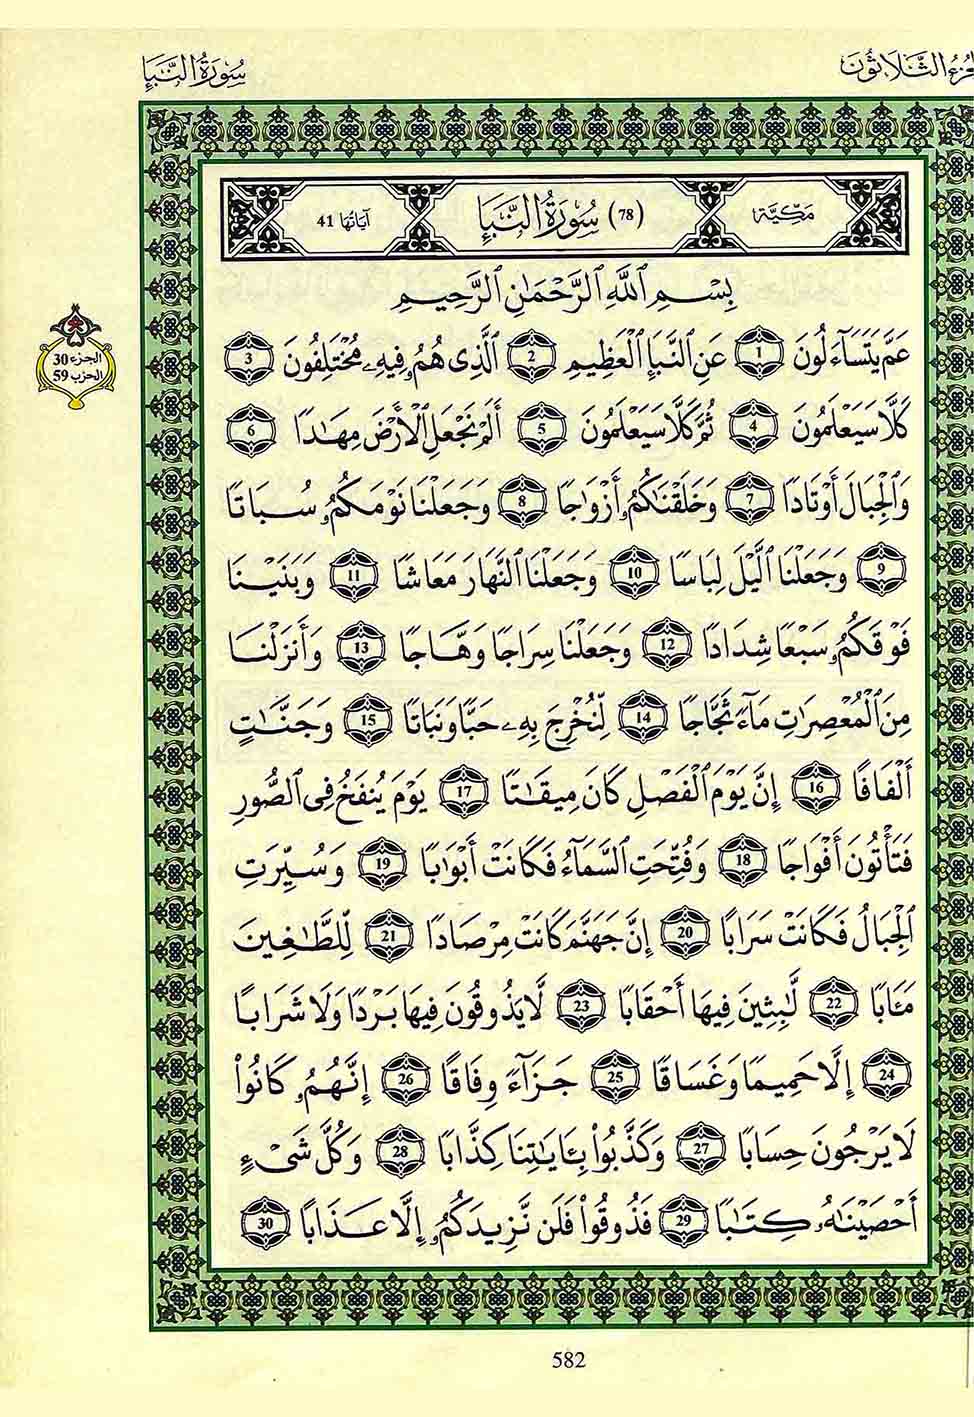 سُورَةُ النَّبَإِ
الثَّلَاثُونَ
مَكِّيَّة (78) سُورَةُ النَّبَإِ آيَاتُهَا 41
بِسْمِ ٱللَّهِ ٱلرَّحْمَٰنِ ٱلرَّحِيمِ
عَمَّ يَتَسَآءَلُونَ 1 عَنِ ٱلنَّبَإِ ٱلْعَظِيمِ 2 ٱلَّذِى هُمُۥ فِيهِۦ مُخْتَلِفُونَ 3
الجزء 30
الحزب 59
كَلَّا سَيَعْلَمُونَ 4 ثُمَّ كَلَّا سَيَعْلَمُونَ 5 أَلَمْ نَجْعَلِ ٱلْأَرْضَ مِهَٰدًا 6
وَٱلْجِبَالَ أَوْتَادًا 7 وَخَلَقْنَٰكُمُۥ أَزْوَٰجًا 8 وَجَعَلْنَا نَوْمَكُمُۥ سُبَاتًا
9 وَجَعَلْنَا ٱلَّيْلَ لِبَاسًا 10 وَجَعَلْنَا ٱلنَّهَارَ مَعَاشًا 11 وَبَنَيْنَا
فَوْقَكُمُۥ سَبْعًا شِدَادًا 12 وَجَعَلْنَا سِرَاجًا وَهَّاجًا 13 وَأَنزَلْنَا
مِنَ ٱلْمُعْصِرَٰتِ مَآءً ثَجَّاجًا 14 لِّنُخْرِجَ بِهِۦ حَبًّا وَنَبَاتًا 15 وَجَنَّٰتٍ
أَلْفَافًا 16 إِنَّ يَوْمَ ٱلْفَصْلِ كَانَ مِيقَٰتًا 17 يَوْمَ يُنفَخُ فِى ٱلصُّورِ
فَتَأْتُونَ أَفْوَاجًا 18 وَفُتِّحَتِ ٱلسَّمَآءُ فَكَانَتْ أَبْوَٰبًا 19 وَسُيِّرَتِ
ٱلْجِبَالُ فَكَانَتْ سَرَابًا 20 إِنَّ جَهَنَّمَ كَانَتْ مِرْصَادًا 21 لِّلطَّٰغِينَ
مَـَٔابًا 22 لَّٰبِثِينَ فِيهَا أَحْقَابًا 23 لَا يَذُوقُونَ فِيهَا بَرْدًا وَلَا شَرَابًا
24 إِلَّا حَمِيمًا وَغَسَاقًا 25 جَزَآءً وِفَاقًا 26 إِنَّهُمُۥ كَانُوا۟
لَا يَرْجُونَ حِسَابًا 27 وَكَذَّبُوا۟ بِـَٔايَٰتِنَا كِذَّابًا 28 وَكُلَّ شَىْءٍ
أَحْصَيْنَٰهُۥ كِتَٰبًا 29 فَذُوقُوا۟ فَلَن نَّزِيدَكُمُۥ إِلَّا عَذَابًا 30
582